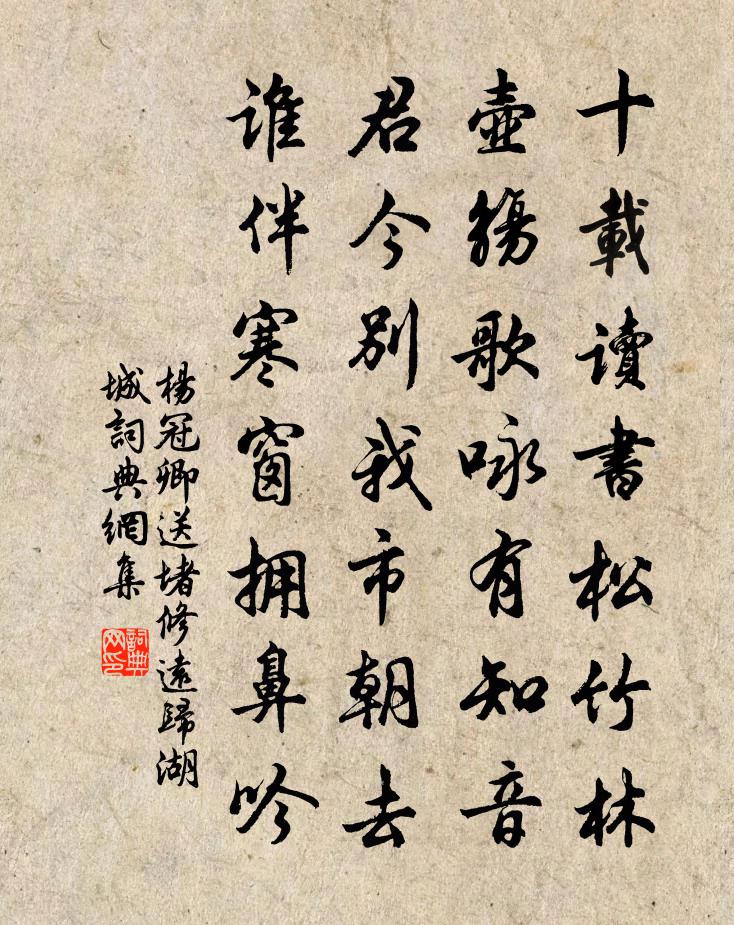 十載讀書松竹林
壺觴歌咏有知音
君今別我市朝去
誰伴寒窗拥鼻吟
楊冠卿送堵修遠歸湖
城詞典網集
詞典网印